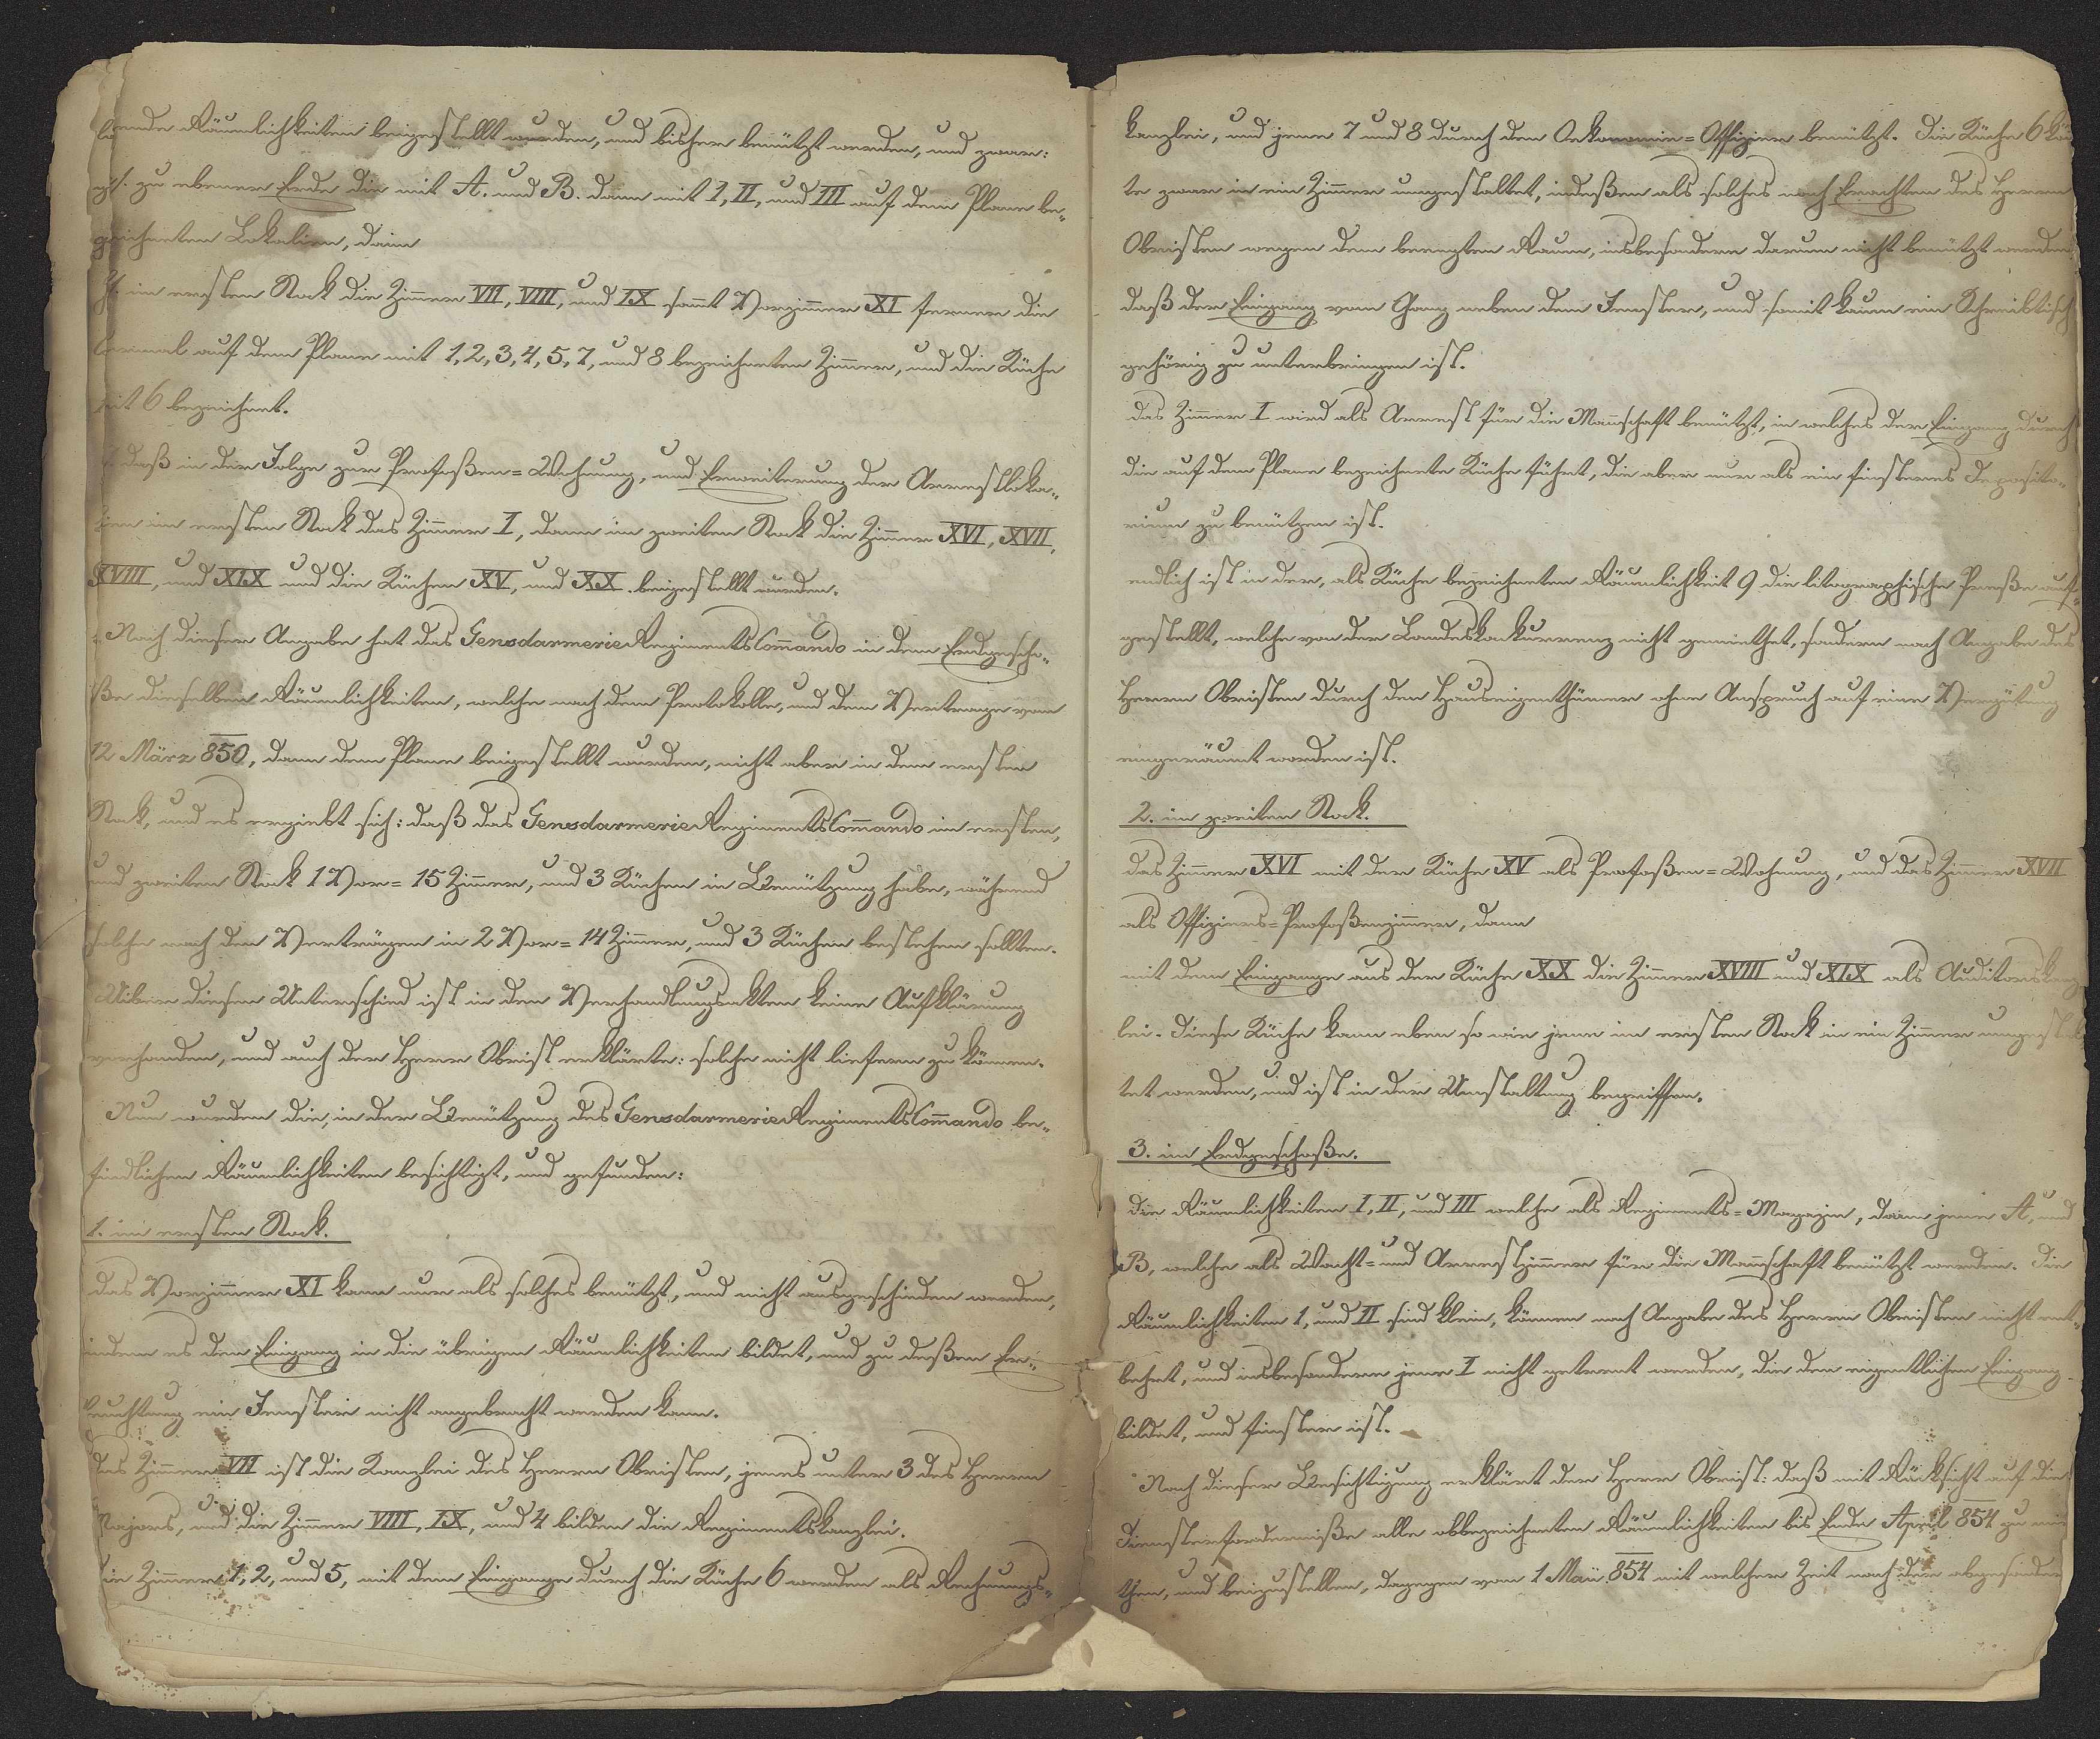 lgende Räumlichkeiten beigestellt wurden, und bisher benützt werden, und zwar:
zu ebener Erde die mit A. und B. dann mit I, II, und III auf dem Plane be-
zeichneten Lokalien, dann
im ersten Stock die Zimmer VII, VIII, und IX samt Vorzimmer XI ferner die
auf dem Plane mit 1, 2, 3, 4, 5, 7, und 8 bezeichneten Zimmer, und die Küche
mit 6 bezeichnet.
daß in der Folge zur Profoßen=Wohnung, und Erweiterung der Arrestloka-
lien im ersten Stock das Zimmer I, dann im zweiten Stock die Zimmer XVI, XVII,
XVIII, und XIX und die Küchen XV, und XX. beigestellt wurden.
Nach dieser Angabe hat das Gensdarmerie Regiments Comando in dem Erdgescho-
ße dieselben Räumlichkeiten, welche nach dem Protokolle, und dem Vertrage vom
12 März 850, dann dem Plane beigestellt wurden, nicht aber in dem ersten
Stock, und es ergiebt sich: daß das Gensdarmerie Regiments Comando im ersten,
und zweiten Stock 1 Vor= 15 Zimmer, und 3 Küchen in Benützung habe, während
solche nach den Verträgen in 2 Vor= 14 Zimmer, und 3 Küchen bestehen sollten.
Uiber diesen Unterschied ist in den Verhandlungsakten keine Aufklärung
vorhanden, und auch der Herr Obrist erklärte: solche nicht liefern zu können.
Nun wurden die, in der Benützung des Gensdarmerie Regiments Comando be-
findlichen Räumlichkeiten besichtigt, und gefunden:
1. im ersten Stock.
das Vorzimmer XI kann nur als solches benützt, und nicht ausgeschieden werden,
indem es den Eingang in die übrigen Räumlichkeiten bildet, und zu deßen Er-
leuchtung ein Fenster nicht angebracht werden kann.
das Zimmer VII ist die Kanzlei des Herrn Obristen, jenes unter 3 des Herrn
Majors, und die Zimmer VIII, IX, und 4 bilden die Regimentskanzlei.
die Zimmer 1, 2, und 5, mit dem Eingange durch die Küche 6 werden als Rechnungs-
kanzlei, und jene 7 und 8 durch den Oekonomie=Offizier benützt. Die Küche 6 kön
te zwar in ein Zimmer umgestaltet, indeßen als solches nach Erachten des Herrn
Obristen wegen dem beengten Raum, insbesondere darum nicht benützt werden
daß der Eingang vom Gang neben dem Fenster, und somit kaum ein Schreibtisch
gehörig zu unterbringen ist.
das Zimmer I wird als Arrest für die Mannschaft benützt, in welches der Eingang durch
die auf dem Plane bezeichnete Küche führt, die aber nur als ein finsteres Deposito-
rium zu benützen ist.
endlich ist in der, als Küche bezeichneten Räumlichkeit 9 die litographische Preße auf-
gestellt, welche von der Landeskonkurrenz nicht gemiethet, sondern nach Angabe des
Herrn Obristen durch den Hauseigenthümer ohne Anspruch auf eine Vergütung
eingeräumt worden ist.
2. im zweiten Stock.
das Zimmer XVI mit der Küche XV als Profoßen=Wohnung, und das Zimmer XVII
als Offiziers=Profoßenzimmer, dann
mit dem Eingange aus der Küche XX die Zimmer XVIII und XIX als Auditorskanz
lei. Diese Küche kann eben so wie jene im ersten Stock in ein Zimmer umgestal
tet werden, und ist in der Umstaltung begriffen.
3. im Erdgeschoße.
die Räumlichkeiten I, II, und III welche als Regiments=Magazin, dann jene A, und
B, welche als Wacht= und Arrestzimmer für die Mannschaft benützt werden. Die
Räumlichkeiten 1, und II sind klein, können nach Angabe des Herrn Obristen nicht ent-
behrt, und insbesondere jene I nicht getrennt werden, die den eigentlichen Eingang
bildet, und finster ist.
Nach dieser Besichtigung erklärt der Herr Obrist: daß mit Rücksicht auf die
Diensterforderniße alle obbezeichneten Räumlichkeiten bis Ende April 854 zu mie
then, und beizustellen, dagegen vom 1 Mai 854 mit welcher Zeit nach den abgesonder